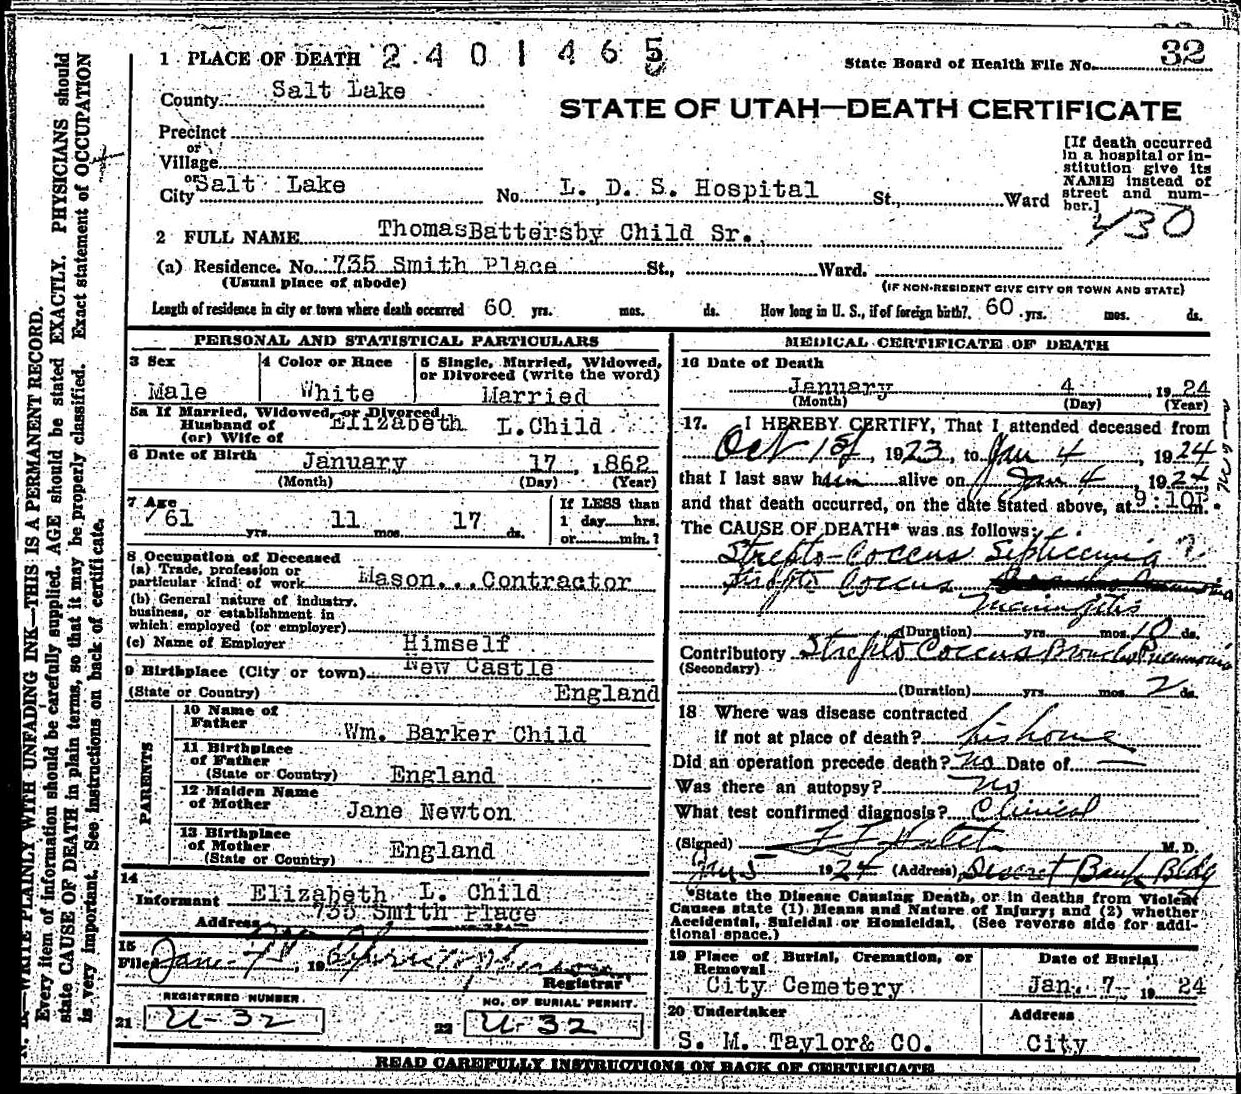 32
1 PLACE OF DEATH 2401465
State Board of Health File No. 32
County Salt Lake
STATE OF UTAH—DEATH CERTIFICATE
Precinct
or
Village
or
City Salt Lake No. L. D. S. Hospital St., Ward
[If death occurred in a hospital or in-
stitution give its NAME instead of street and num-
ber.]
430
2 FULL NAME ThomasBattersby Child Sr.
(a) Residence. No. 735 Smith Place St., Ward.
(Usual place of abode) (IF NON-RESIDENT GIVE CITY OR TOWN AND STATE)
Length of residence in city or town where death occurred 60 yrs. mos. ds. How long in U. S., if of foreign birth? 60 yrs. mos. ds.
PERSONAL AND STATISTICAL PARTICULARS
3 Sex
Male
4 Color or Race
White
5 Single, Married, Widowed,
or Divorced (write the word)
Married
5a If Married, Widowed, or Divorced
Husband of
(or) Wife of Elizabeth L.Child
6 Date of Birth January 17, 1862
(Month) (Day) (Year)
7 Age
61 yrs. 11 mos. 17 ds.
If LESS than
1 day hrs.
or min.?
8 Occupation of Deceased
(a) Trade, profession or
particular kind of work Mason...Contractor
(b) General nature of industry,
business, or establishment in
which employed (or employer)
(c) Name of Employer Himself
9 Birthplace (City or town) New Castle
(State or Country) England
PARENTS
10 Name of
Father Wm. Barker Child
11 Birthplace
of Father
(State or Country) England
12 Maiden Name
of Mother Jane Newton
13 Birthplace
of Mother
(State or Country) England
14
Informant Elizabeth L. Child
Address 735 Smith Place
15
Filed 19
Registrar
REGISTERED NUMBER.
21 U-32
NO. OF BURIAL PERMIT.
22 U-32
MEDICAL CERTIFICATE OF DEATH
16 Date of Death
January 4, 1924
(Month) (Day) (Year)
17. I HEREBY CERTIFY, That I attended deceased from
Oct 1st, 1923, to Jan 4, 1924
that I last saw him alive on Jan 4, 1924
and that death occurred, on the date stated above, at 9:10P m.
The CAUSE OF DEATH* was as follows:
Strepto-Coccus Septicemia ?
Strepto Coccus
Meningitis
(Duration) yrs. mos. 10 ds.
Contributory Strepto Coccus Broncho Pneumonia
(Secondary)
(Duration) yrs. mos. 2 ds.
18 Where was disease contracted
if not at place of death? his home
Did an operation precede death? no Date of —
Was there an autopsy? No
What test confirmed diagnosis? Clinical
(Signed) M. D.
Jan 5 1924 (Address) Deseret Bank Bldg
*State the Disease Causing Death, or in deaths from Violent
Causes state (1) Means and Nature of Injury; and (2) whether
Accidental, Suicidal or Homicidal. (See reverse side for addi-
tional space.)
19 Place of Burial, Cremation, or
Removal
City Cemetery
Date of Burial
Jan. 7- 19 24
20 Undertaker
S. M. Taylor& CO.
Address
City
READ CAREFULLY INSTRUCTIONS ON BACK OF CERTIFICATE
WRITE PLAINLY WITH UNFADING INK—THIS IS A PERMANENT RECORD.
Every item of information should be carefully supplied. AGE should be stated EXACTLY. PHYSICIANS should
state CAUSE OF DEATH in plain terms, so that it may be properly classified. Exact statement of OCCUPATION
is very important. See instructions on back of certificate.